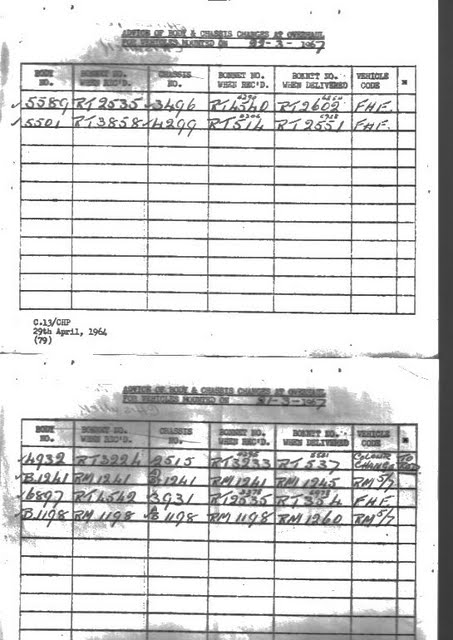 ADVICE OF BODY & CHASSIS CHANGES AT OVERHAUL
FOR VEHICLES MOUNTED ON 22-3-1967
BODY NO. BONNET NO. WHEN REC'D. CHASSIS NO. BONNET NO. WHEN REC'D. BONNET NO. WHEN DELIVERED VEHICLE CODE
✓5589 RT2535 ✓3496 RT4540 RT2602 FHF.
✓5501 RT3858 ✓4299 RT514 RT2551 FHF.
C.13/CHP
29th April, 1964
(79)
ADVICE OF BODY & CHASSIS CHANGES AT OVERHAUL
FOR VEHICLES MOUNTED ON 21-3-1967
BODY NO. BONNET NO. WHEN REC'D. CHASSIS NO. BONNET NO. WHEN REC'D. BONNET NO. WHEN DELIVERED VEHICLE CODE
✓4932 RT3224 ✓2515 RT3233 RT537 COLOUR CHANGE TO RED
✓B.1241 RM1241 ✓B1241 RM1241 RM1245 RM5/7
✓6897 RT4542 ✓3931 RT2535 RT354 FHF
✓B.1198 RM1198 ✓B1198 RM1198 RM1260 RM5/7